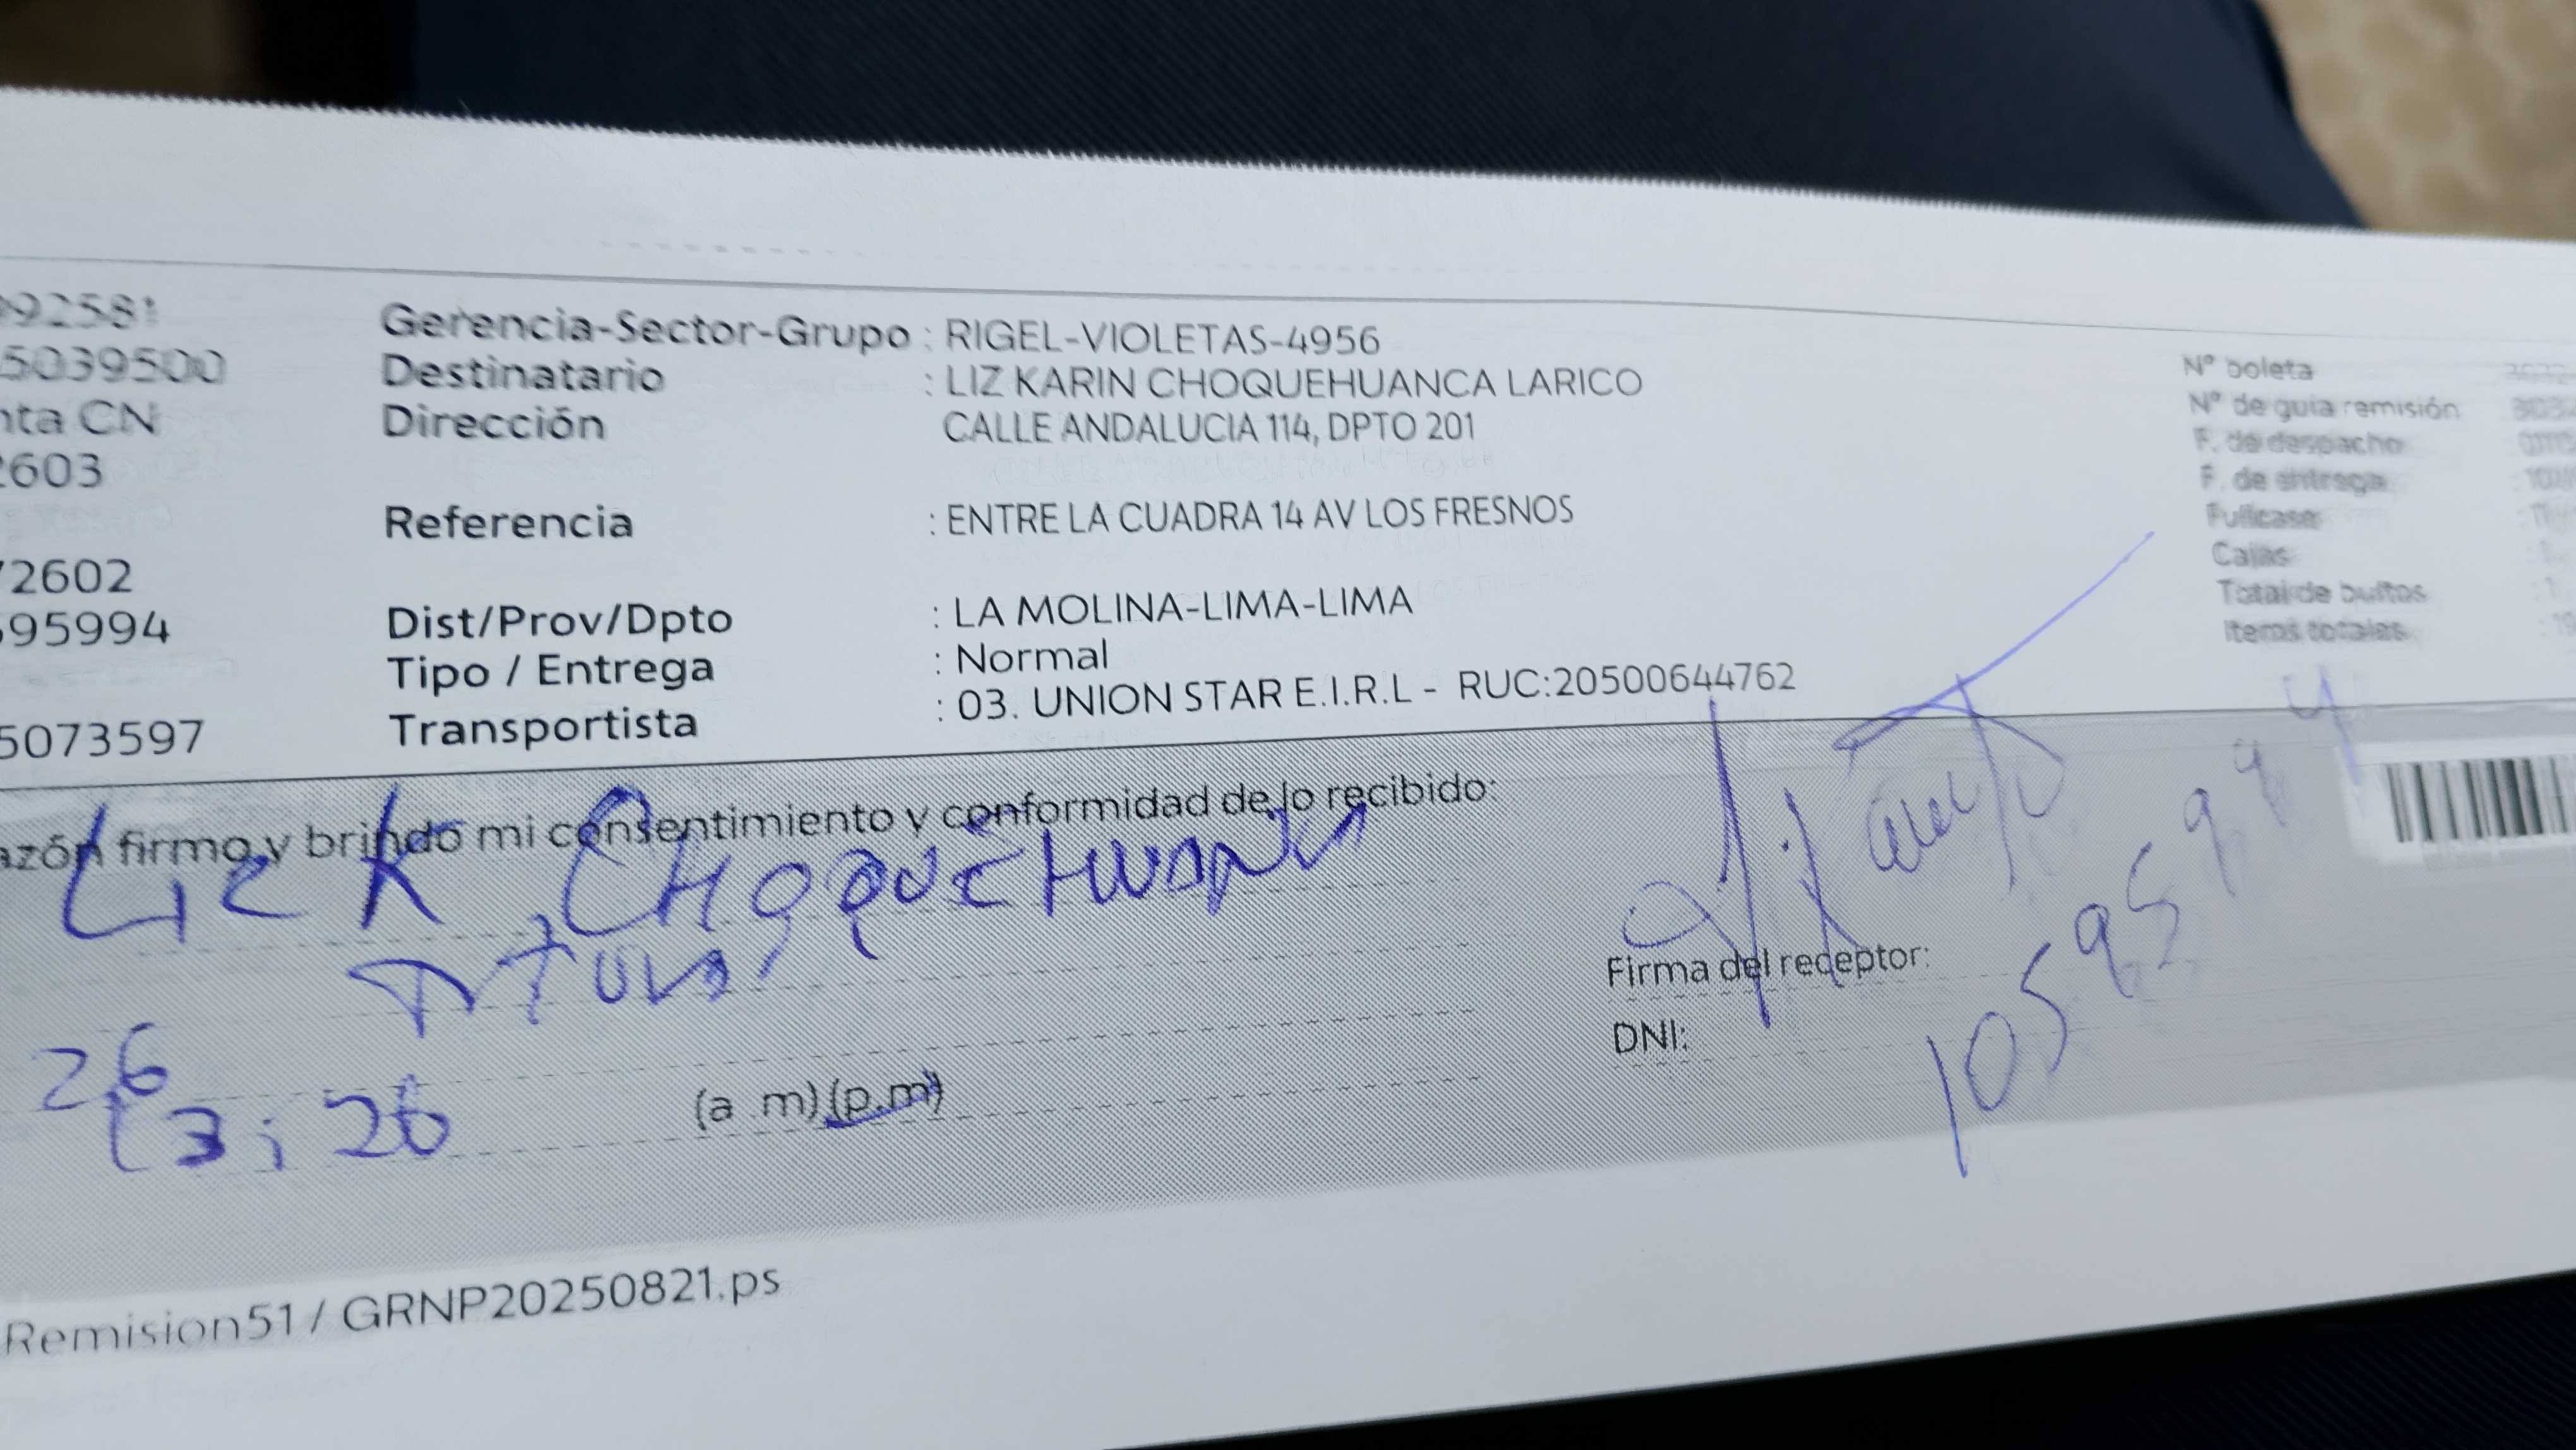 92581
5039500
nta CN
2603
72602
595994
5073597
Gerencia-Sector-Grupo : RIGEL-VIOLETAS-4956
Destinatario : LIZ KARIN CHOQUEHUANCA LARICO
Dirección CALLE ANDALUCIA 114, DPTO 201
Referencia : ENTRE LA CUADRA 14 AV LOS FRESNOS
Dist/Prov/Dpto : LA MOLINA-LIMA-LIMA
Tipo / Entrega : Normal
Transportista : 03. UNION STAR E.I.R.L - RUC:20500644762
Nº boleta
Nº de guia remisión
F. de despacho
F. de entrega
Fullcase
Cajas
Total de bultos
Items totales
azón firmo y brindo mi consentimiento y conformidad de lo recibido:
LIZ K CHOQUEHUANCA
26
13:26 (a .m) (p.m)
Firma del receptor:
DNI: 10595994
Remision51 / GRNP20250821.ps